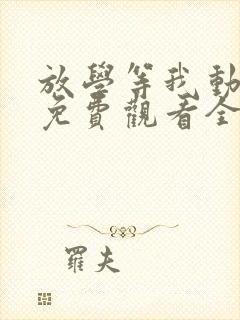 放學等我動
免費觀看全
羅夫